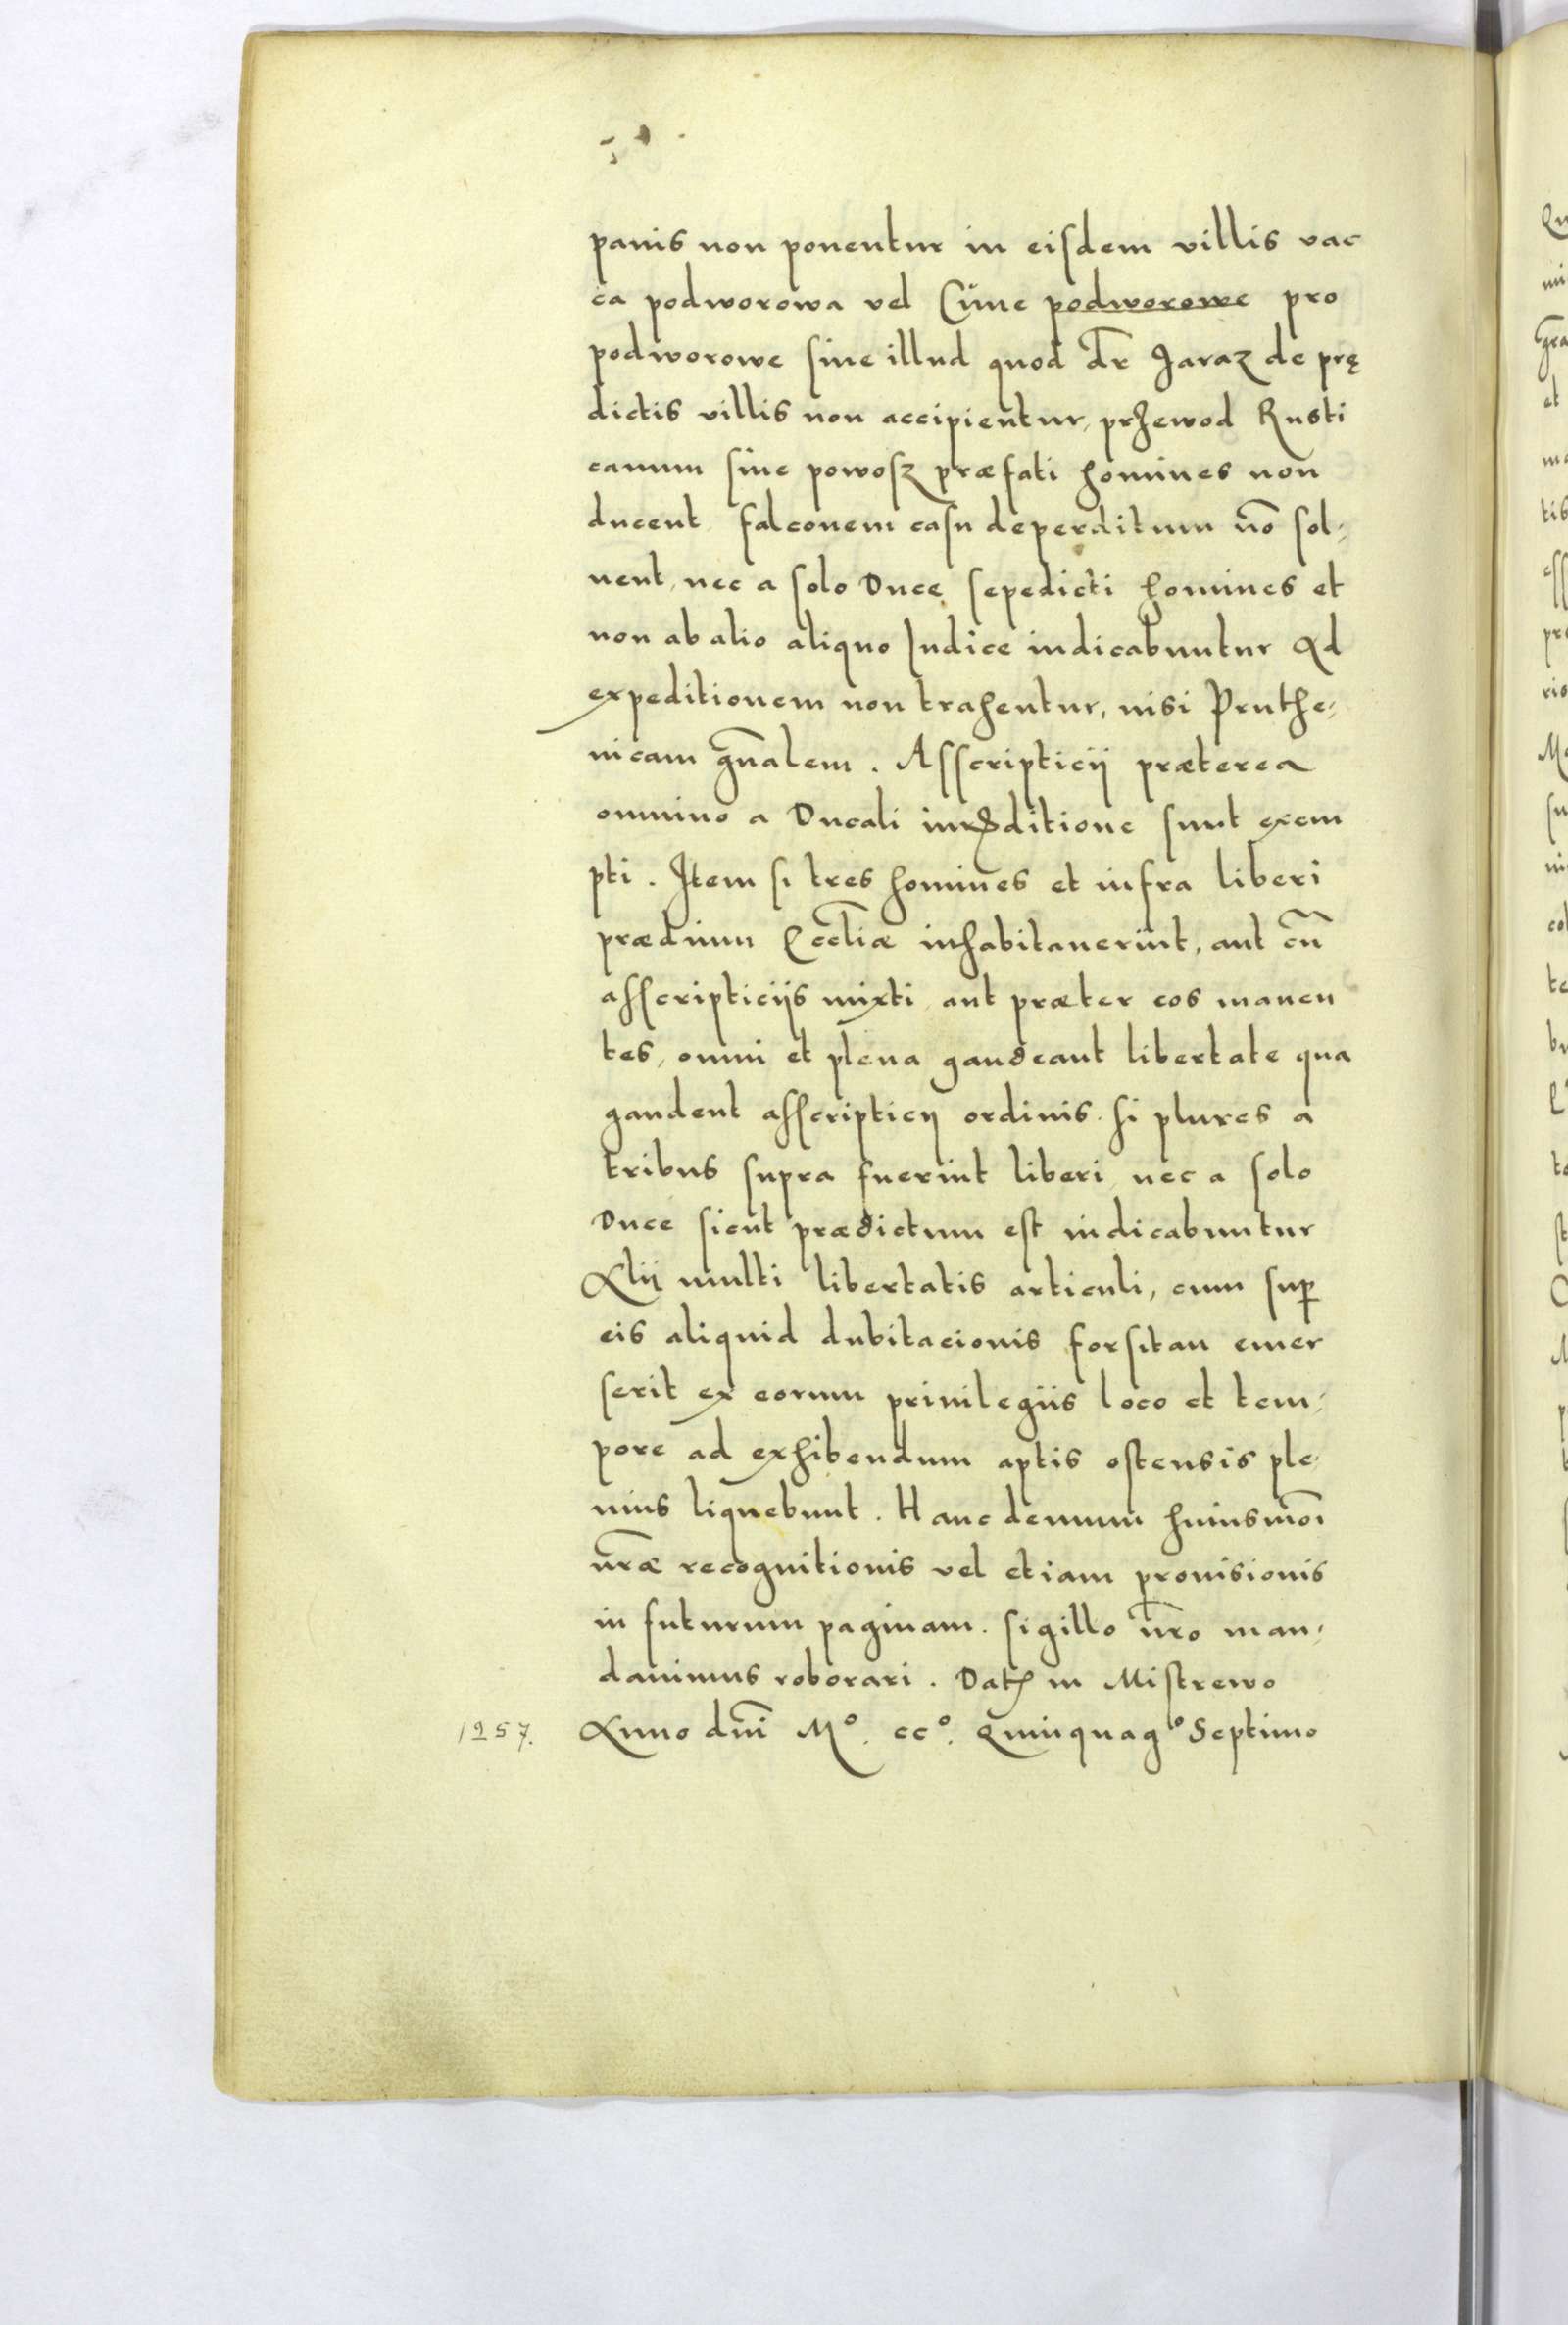 panis non ponentur in eisdem villis vac
ca podworowa vel Cune podworowe pro
podworowe siue illud quod dr̃ Jaraz de prę
dictis villis non accipientur, przewod Rusti
canum siue powosz præfati homines non
ducent falconem casu deperditum nõ sol-
uent, nec a solo Duce sepedicti homines et
non ab alio aliquo Judice iudicabuntur Ad
expeditionem non trahentur, nisi Pruthe-
nicam gñalem. Asscripticij præterea
omnino a Ducali iurisditione sunt exem
pti. Item si tres homines et infra liberi
prædium Eccl̃iæ inhabitauerint, aut cũ
asscripticijs mixti aut præter eos manen
tes, omni et plena gaudeant libertate qua
gaudent asscripticij ordinis. Si plures a
tribus supra fuerint liberi nec a solo
Duce sicut prædictum est iudicabuntur
Alij multi libertatis articuli, cum sup
eis aliquid dubitacionis forsitan emer
serit ex eorum priuilegiis loco et tem-
pore ad exhibendum aptis ostensis ple-
nius liquebunt. Hanc demum huiusmõi
nr̃æ recognitionis vel etiam prouisionis
in futurum paginam. sigillo nr̃o man-
dauimus roborari. Dat in Mistrewo
1257. Anno dñi Mº. ccº. Quinquagº Septimo